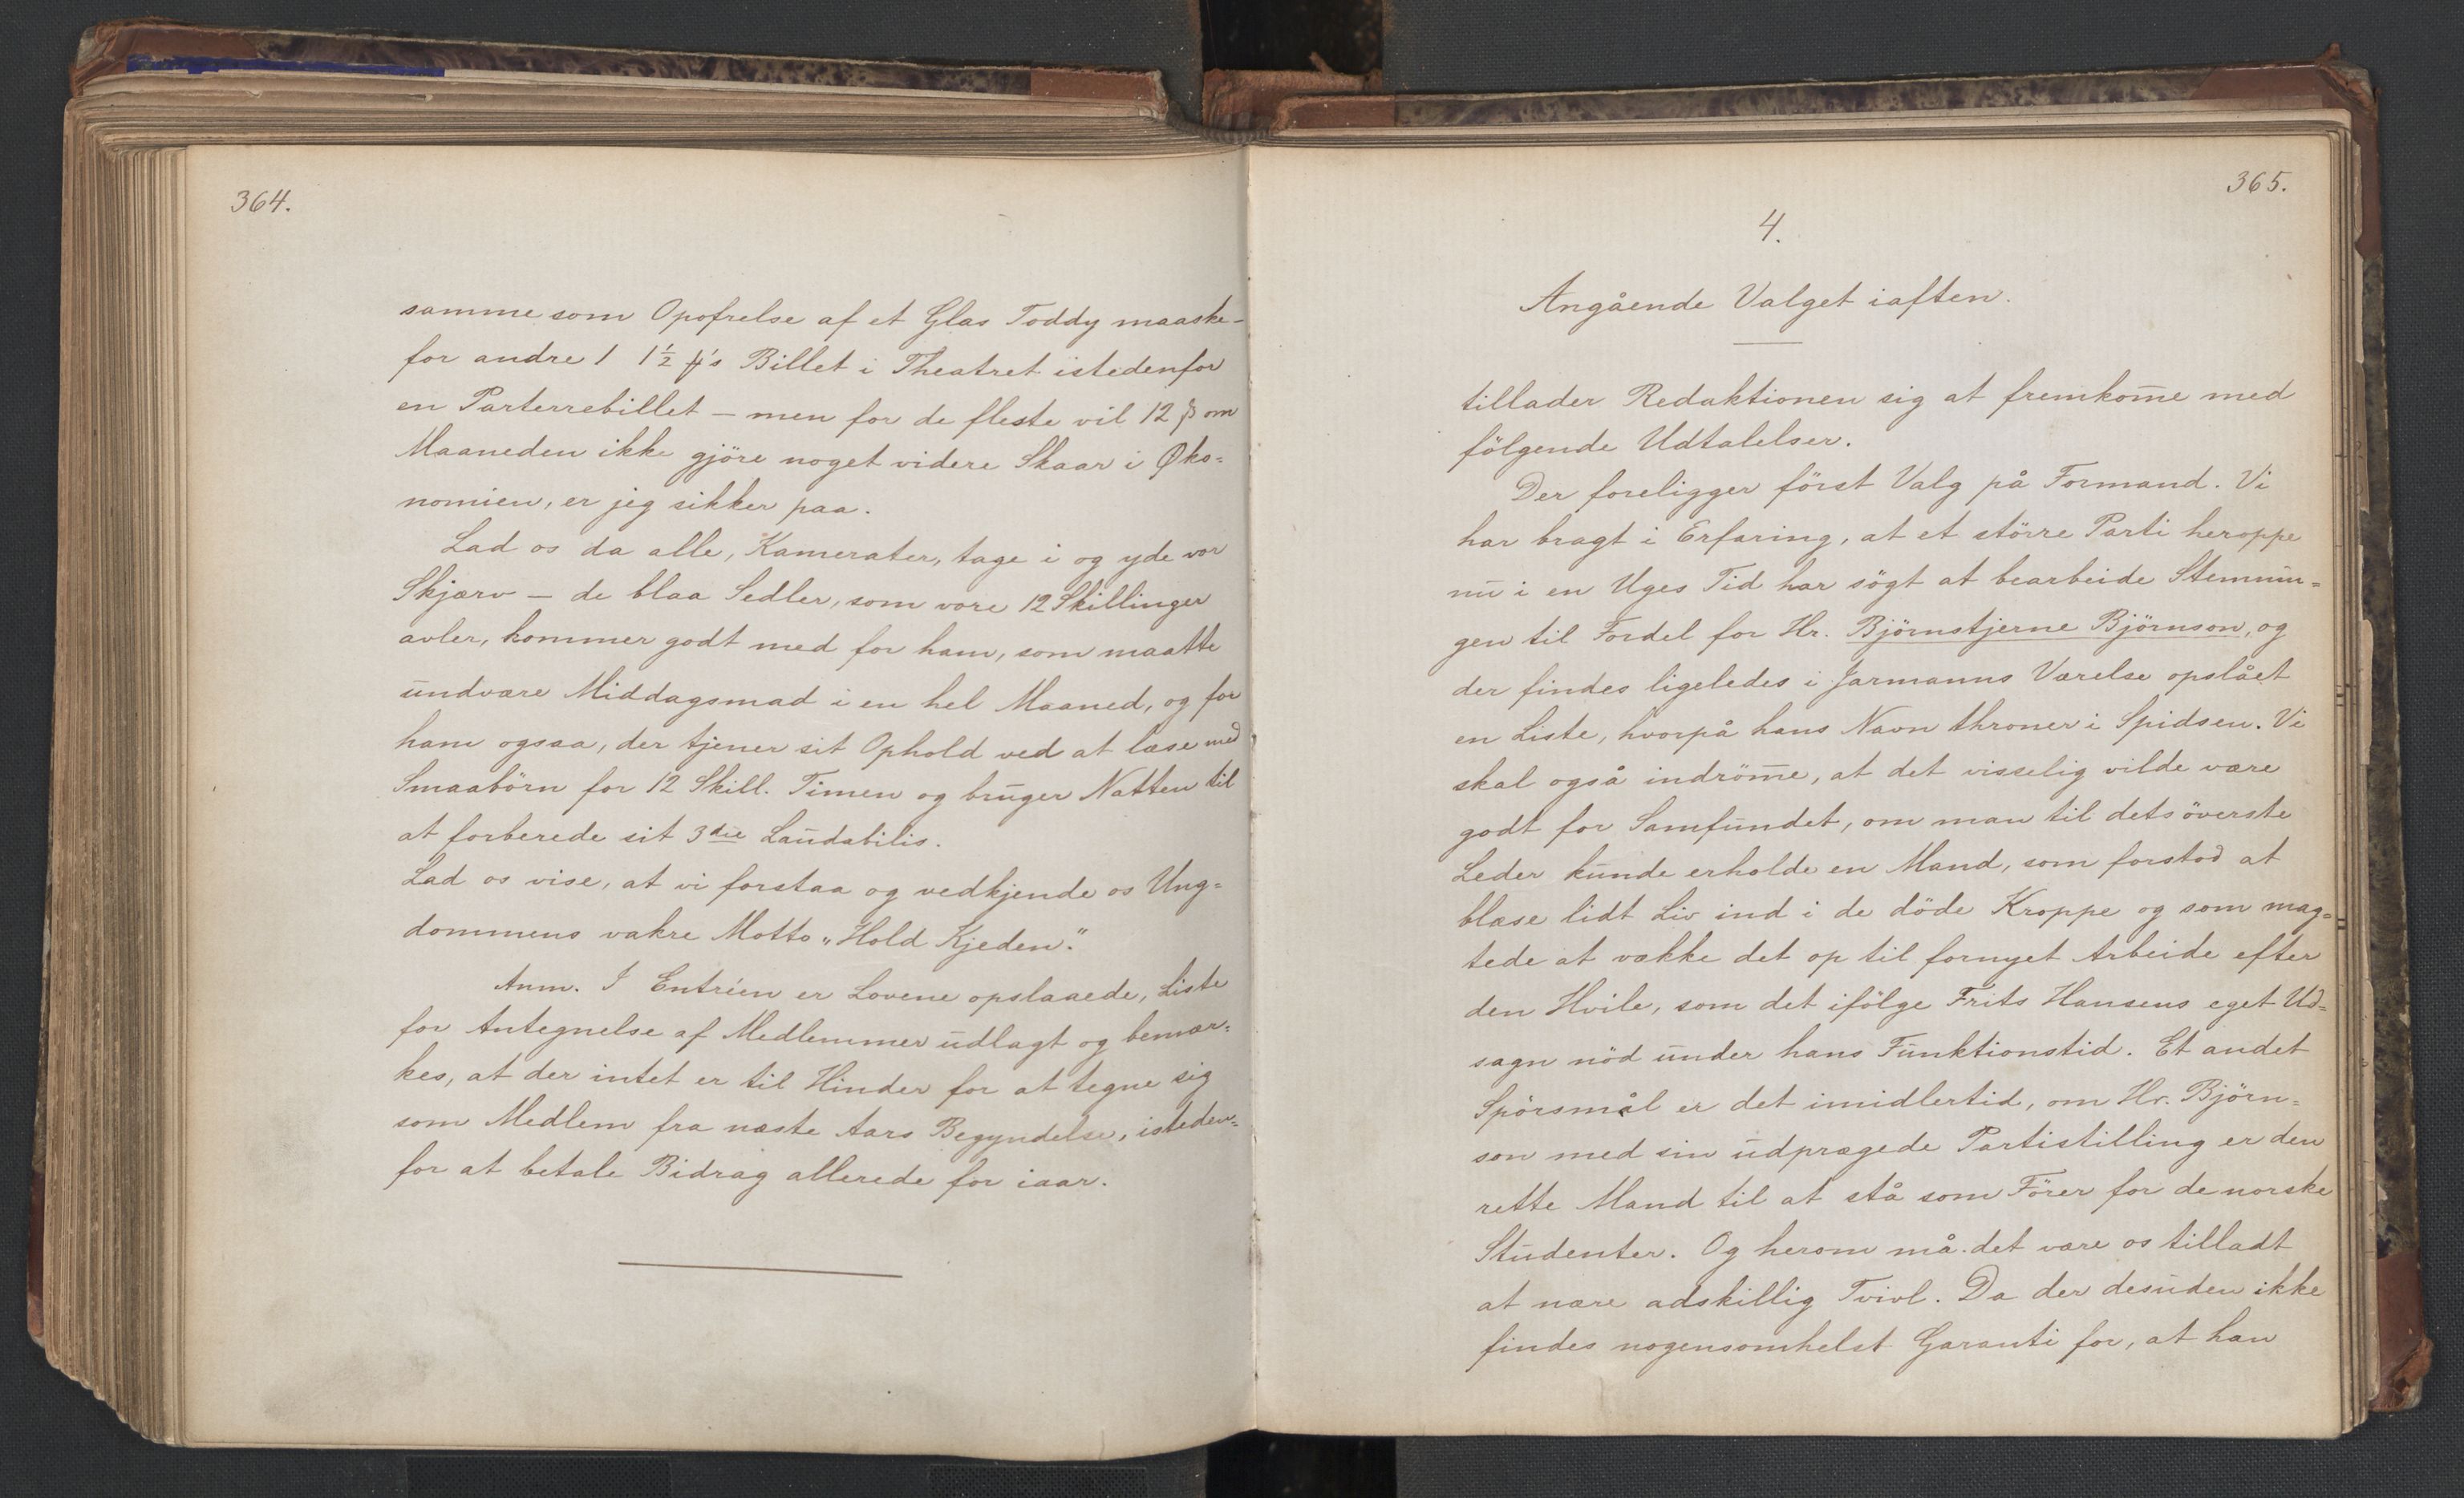 364.
samme som Opofrelse af et Glas Toddy maaske –
for andre 1 1½ ƒ's Billet i Theatret istedenfor
en Parterrebillet – men for de fleste vil 12 ß om
Maaneden ikke gjöre noget videre Skaar i Øko-
nomien, er jeg sikker paa.
Lad os da alle, Kamerater, tage i og yde vor
Skjærv – de blaa Sedler, som vore 12 Skillinger
avler, kommer godt med for ham, som maatte
undvære Middagsmad i en hel Maaned, og for
ham ogsaa, der tjener sit Ophold ved at læse med
Smaabörn for 12 Skill. Timen og bruger Natten til
at forberede sit 3die Laudabilis.
Lad os vise, at vi forstaa og vedkjende os Ung-
dommens vakre Motto „Hold Kjeden".
Anm. I Entréen er Lovene opslaaede, Liste
for Antegnelse af Medlemmer udlagt og bemær-
kes, at der intet er til Hinder for at tegne sig
som Medlem fra næste Aars Begyndelse, isteden-
for at betale Bidrag allerede for iaar.
365.
4.
Angående Valget iaften.
tillader Redaktionen sig at fremkom̅e med
fölgende Udtalelser.
Der foreligger först Valg på Formand. Vi
har bragt i Erfaring, at et större Parti heroppe
nu i en Uges Tid har sögt at bearbeide Stemnin-
gen til Fordel for Hr. Björnstjerne Björnson, og
der findes ligeledes i Jarmanns Værelse opslået
en Liste, hvorpå hans Navn throner i Spidsen. Vi
skal også indröm̅e, at det visselig vilde være
godt for Samfundet, om man til dets överste
Leder kunde erholde en Mand, som forstod at
blæse lidt Liv ind i de döde Kroppe og som mag-
tede at vække det op til fornyet Arbeide efter
den Hvile, som det ifölge Frits Hansens eget Ud-
sagn nöd under hans Funktionstid. Et andet
Spörsmål er det imidlertid, om Hr. Björn-
son med sin udprægede Partistilling er den
rette Mand til at stå som Förer for de norske
Studenter. Og herom må det være os tilladt
at nære adskillig Tvivl. Da der desuden ikke
findes nogensomhelst Garanti for, at han